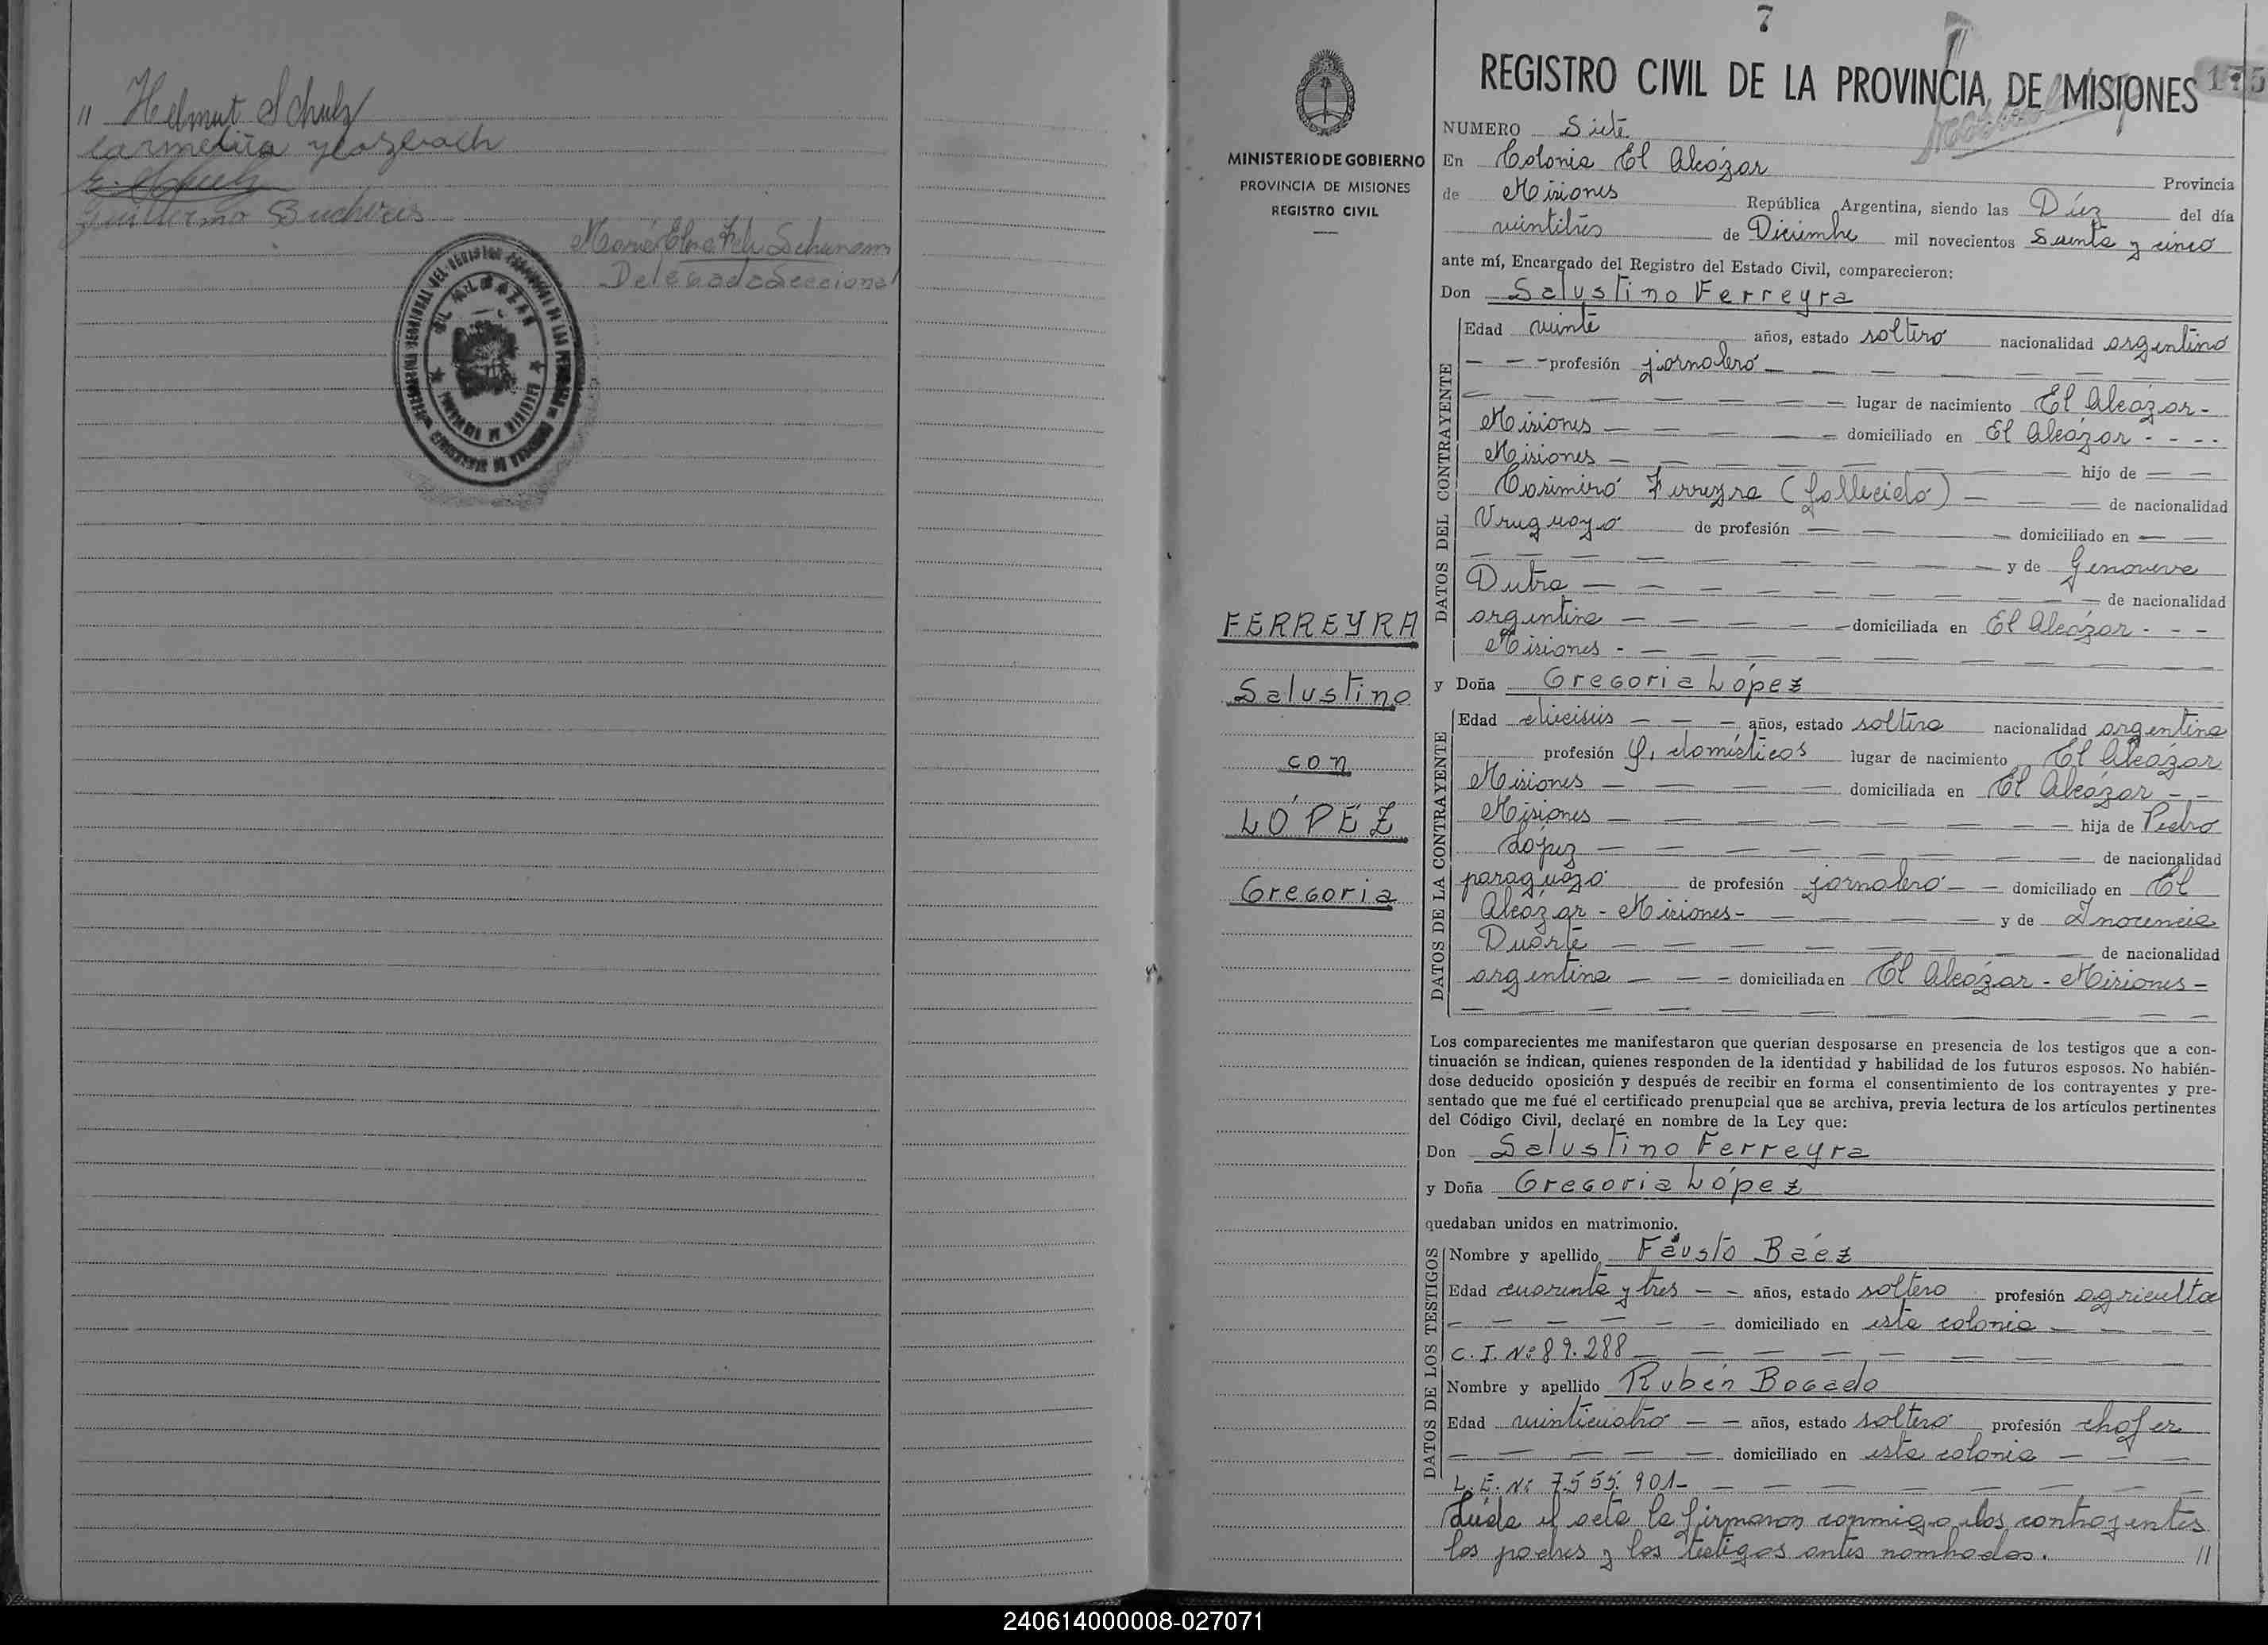 " Helmut Schulz
Guillermo
María Elena
Delegada Seccional
EL ALCAZAR
7
REGISTRO CIVIL DE LA PROVINCIA DE MISIONES 175
MINISTERIO DE GOBIERNO
PROVINCIA DE MISIONES
REGISTRO CIVIL
FERREYRA
Salustino
con
LÓPEZ
Gregoria
NUMERO Siete
En Colonia El Alcázar Provincia
de Misiones República Argentina, siendo las Diez del día
veintitrés de Diciembre mil novecientos sesenta y cinco
ante mí, Encargado del Registro del Estado Civil, comparecieron:
Don Salustino Ferreyra
DATOS DEL CONTRAYENTE
Edad veinte años, estado soltero nacionalidad argentino
- - - profesión jornalero - - - - - - -
- - - - - - - lugar de nacimiento El Alcázar -
Misiones - - - - - domiciliado en El Alcázar - - - -
Misiones - - - - - - - - hijo de - -
Casimiro Ferreyra (fallecido) - - - de nacionalidad
Uruguayo de profesión - - - domiciliado en - -
- - - - - - - - - - y de Genoveva
Dutra - - - - - - - - - de nacionalidad
argentina - - - - - domiciliada en El Alcázar - - -
Misiones - - - - - - - - - - -
y Doña Gregoria López
DATOS DE LA CONTRAYENTE
Edad dieciseis - - - años, estado soltera nacionalidad argentina
profesión Q. domésticos lugar de nacimiento El Alcázar
Misiones - - - - - domiciliada en El Alcázar - -
Misiones - - - - - - - - hija de Pedro
López - - - - - - - - - de nacionalidad
paraguayo de profesión jornalero - - domiciliado en El
Alcázar - Misiones - - - - - y de Inocencia
Duarte - - - - - - - - - de nacionalidad
argentina - - - domiciliada en El Alcázar - Misiones -
- - - - - - - - - - - -
Los comparecientes me manifestaron que querían desposarse en presencia de los testigos que a con-
tinuación se indican, quienes responden de la identidad y habilidad de los futuros esposos. No habién-
dose deducido oposición y después de recibir en forma el consentimiento de los contrayentes y pre-
sentado que me fué el certificado prenupcial que se archiva, previa lectura de los artículos pertinentes
del Código Civil, declaré en nombre de la Ley que:
Don Salustino Ferreyra
y Doña Gregoria López
quedaban unidos en matrimonio.
DATOS DE LOS TESTIGOS
Nombre y apellido Fausto Báez
Edad cuarenta y tres - - años, estado soltero profesión agricultor
- - - - - - domiciliado en esta colonia - - - -
C. I. Nº 89.288 - - - - - - - -
Nombre y apellido Rubén Bogado
Edad veinticuatro - - años, estado soltero profesión chofer
- - - - - domiciliado en esta colonia - - -
L. E. Nº 7.555.901 - - - - - - - -
Leída el acta la firmaron conmigo los contrayentes
los padres y los testigos antes nombrados. //
240614000008-027071